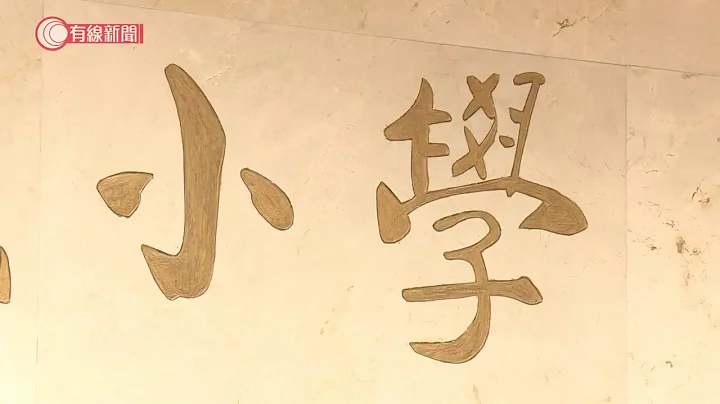 有線新聞
小學